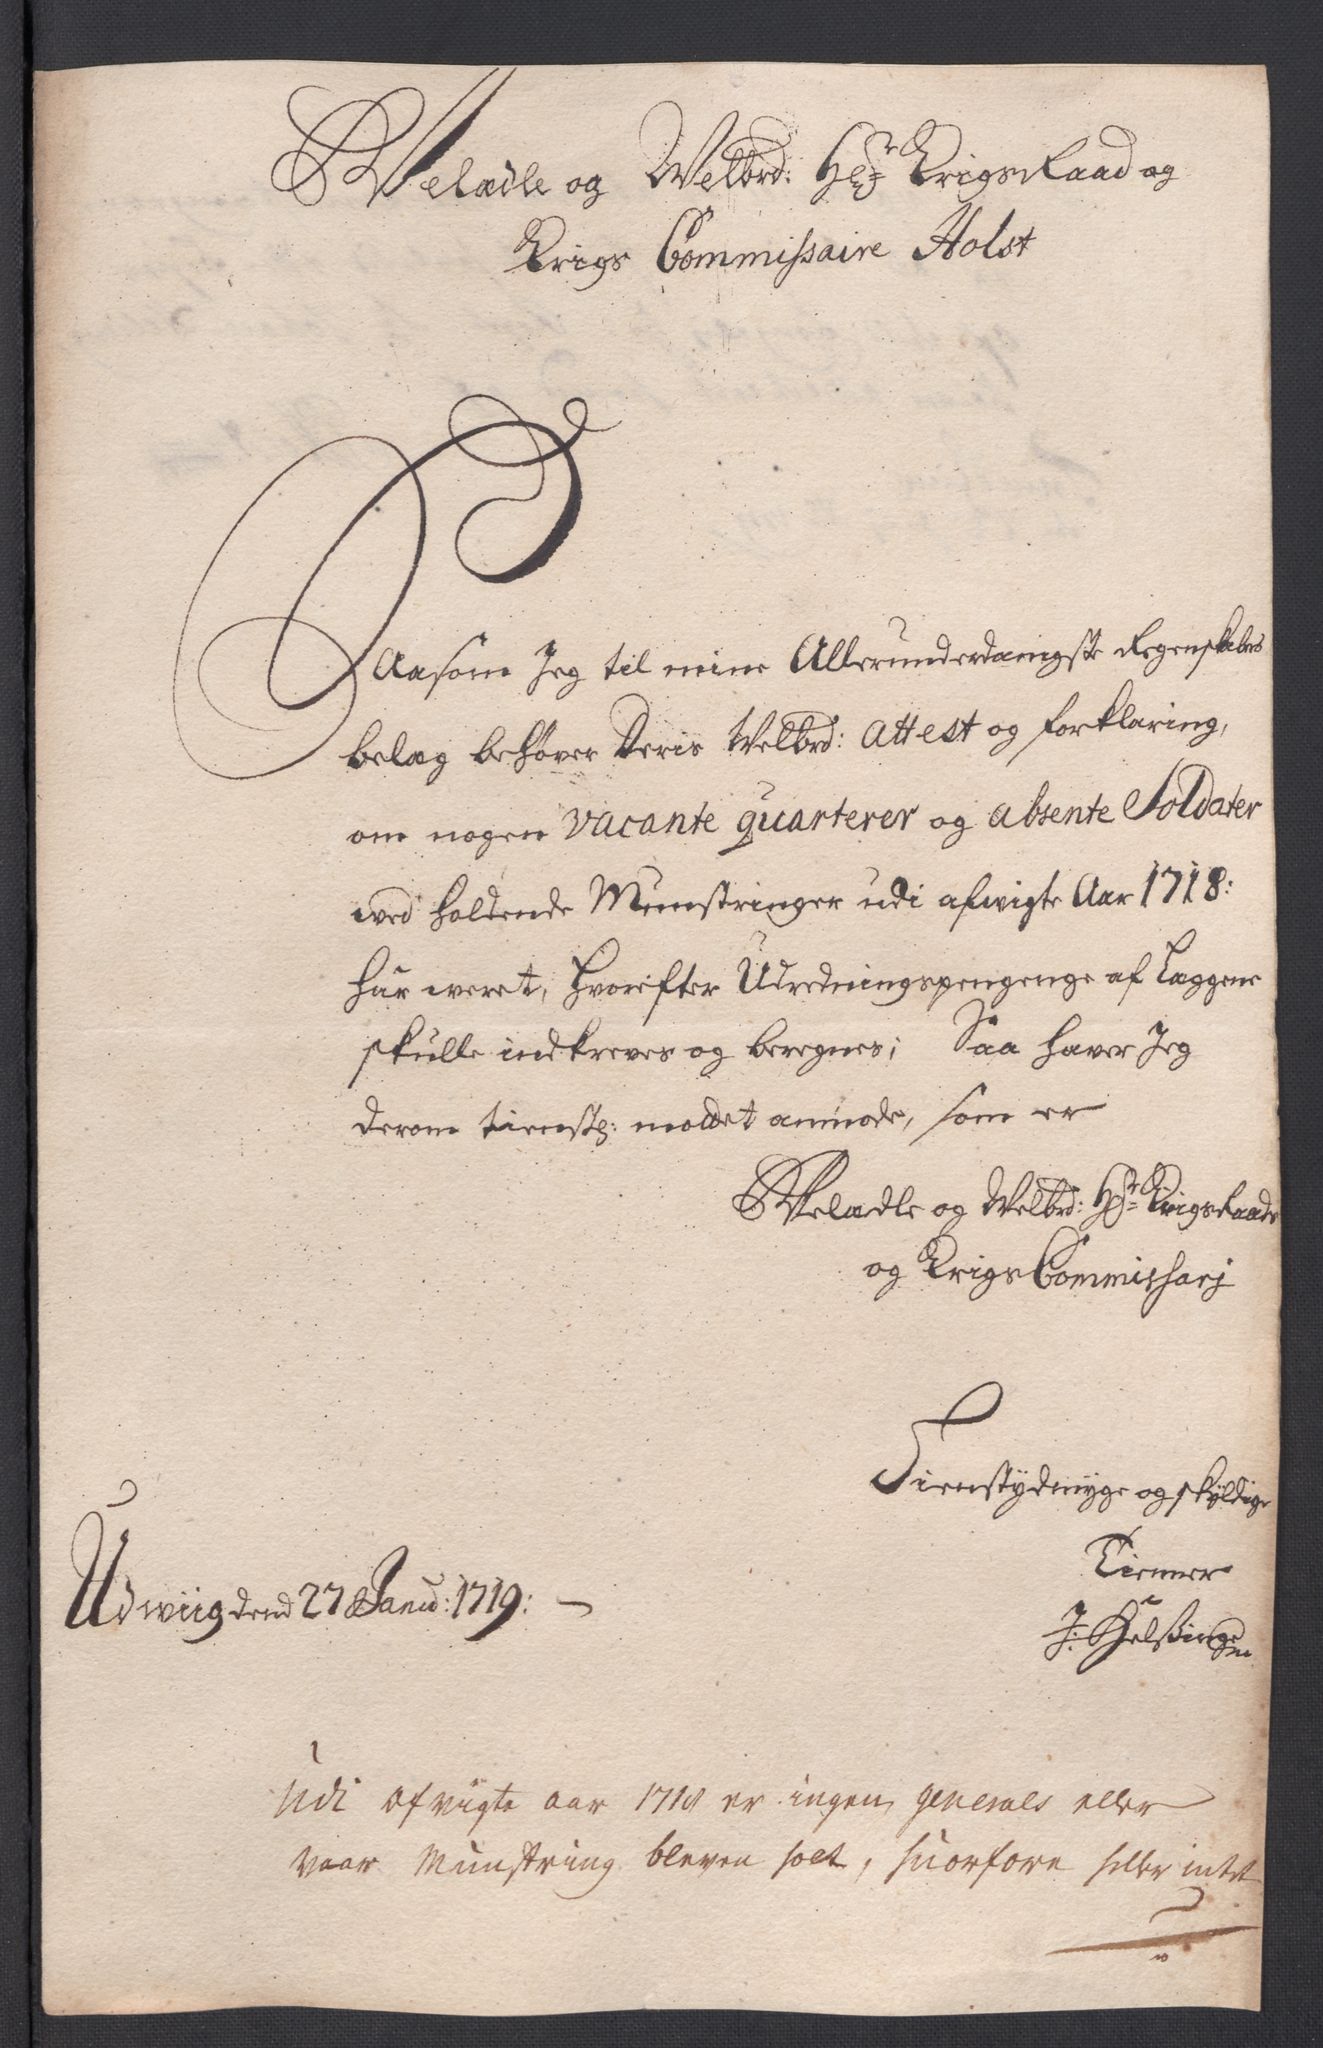 Welædle og Welbrd: Hr: KrigsRaad og
Krigs Commissaire Holst
Saasom Jeg til mine Allerunderdanigste Regenskabers
belæg behøver Deris Welbrd: Attest og forklaring,
om nogen vacante quarterer og absente Soldater
wed holdende Munstringer udi afwigte Aar 1718:
har weret, hvorefter Udredningspengenge af Læggene
skulle indkreves og beregnes; Saa haver Jeg
derom tienstl: moldet anmode, som er
Welædle og Welbrd: Hr: KrigsRaads
og Krigs Commissarj
Tienstydmyge og skyldige
Tienner
Udwiig dend 27 Janu: 1719:
J: Helssing
Udi afvigte aar 1718 er ingen generals eller
vaar Munstring bleven holt, huorfore heller intet